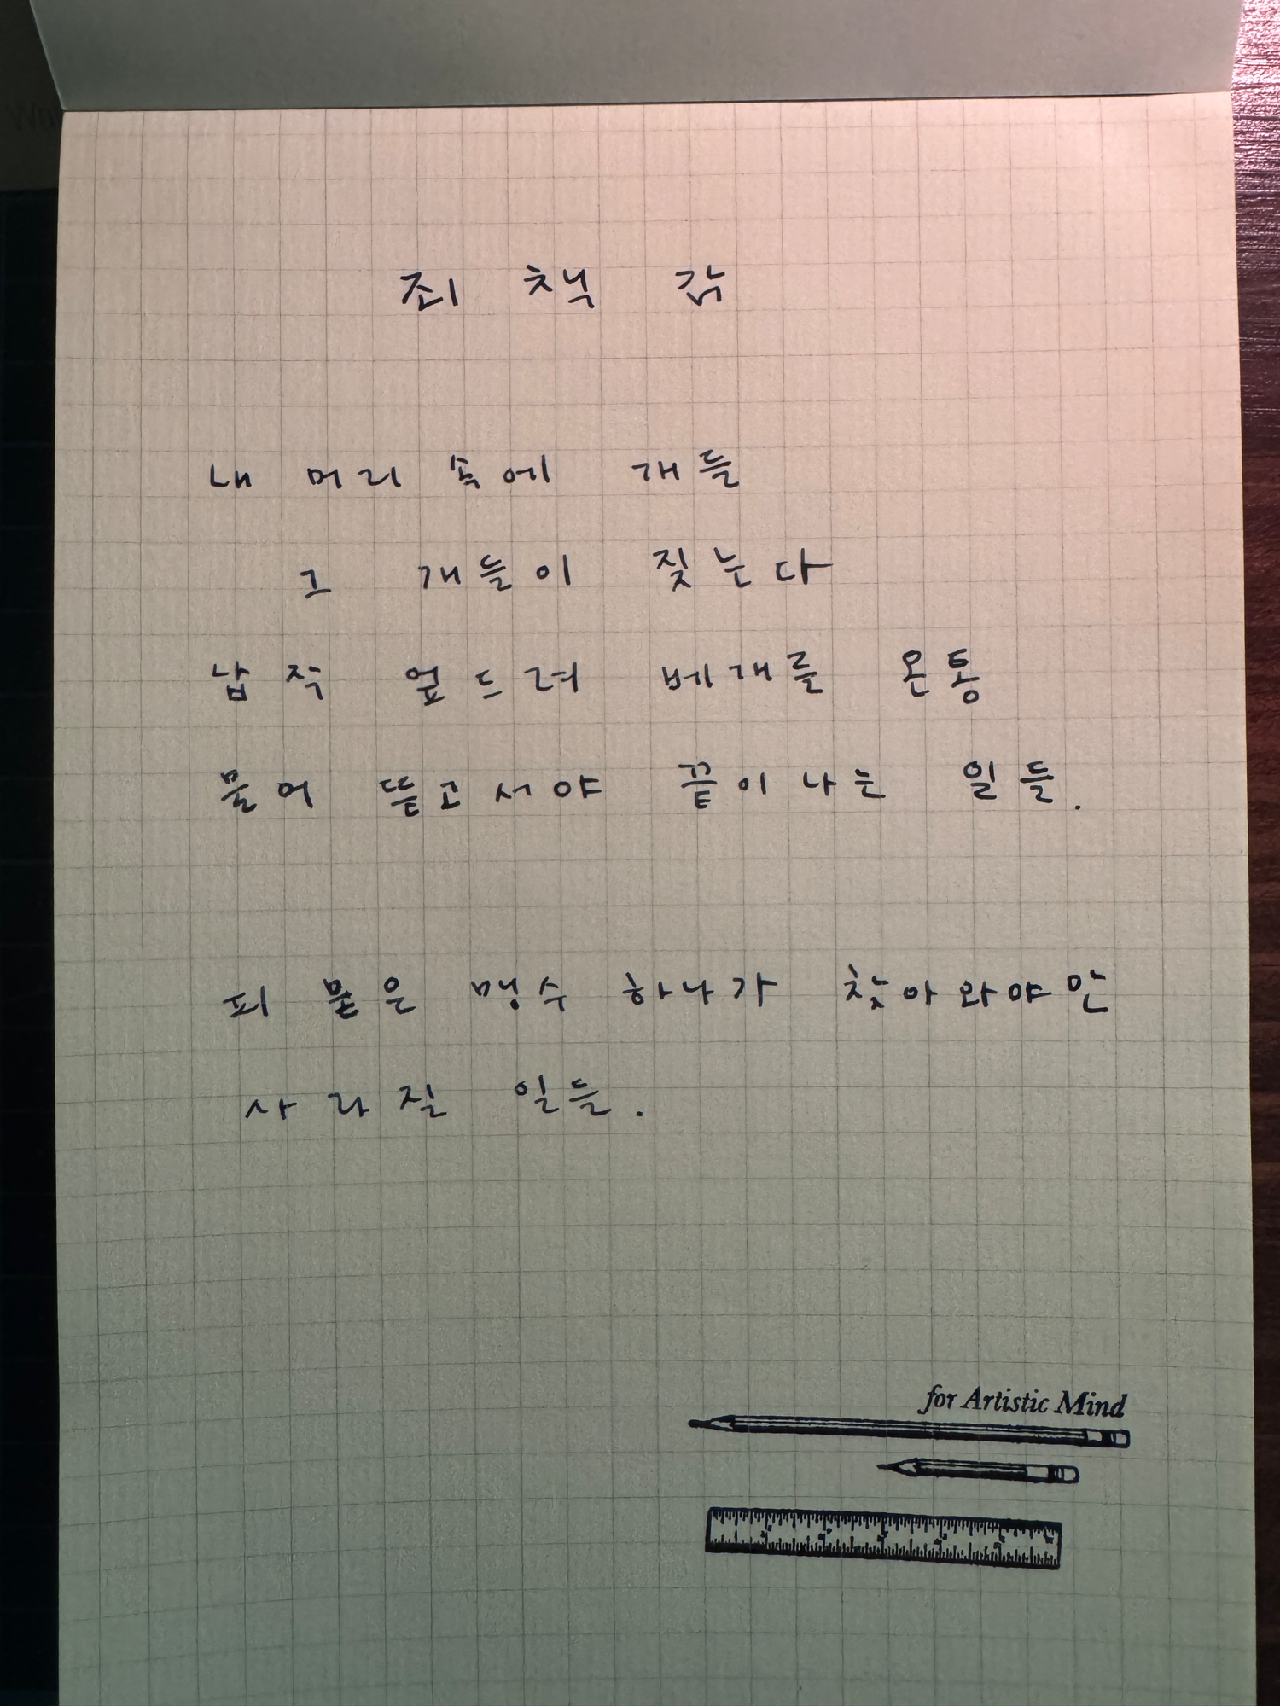 죄책감
내 머리 속에 개들
그 개들이 짖는다
납작 엎드려 베개를 온통
물어 뜯고서야 끝이 나는 일들.
피 묻은 맹수 하나가 찾아와야만
사라질 일들.
for Artistic Mind